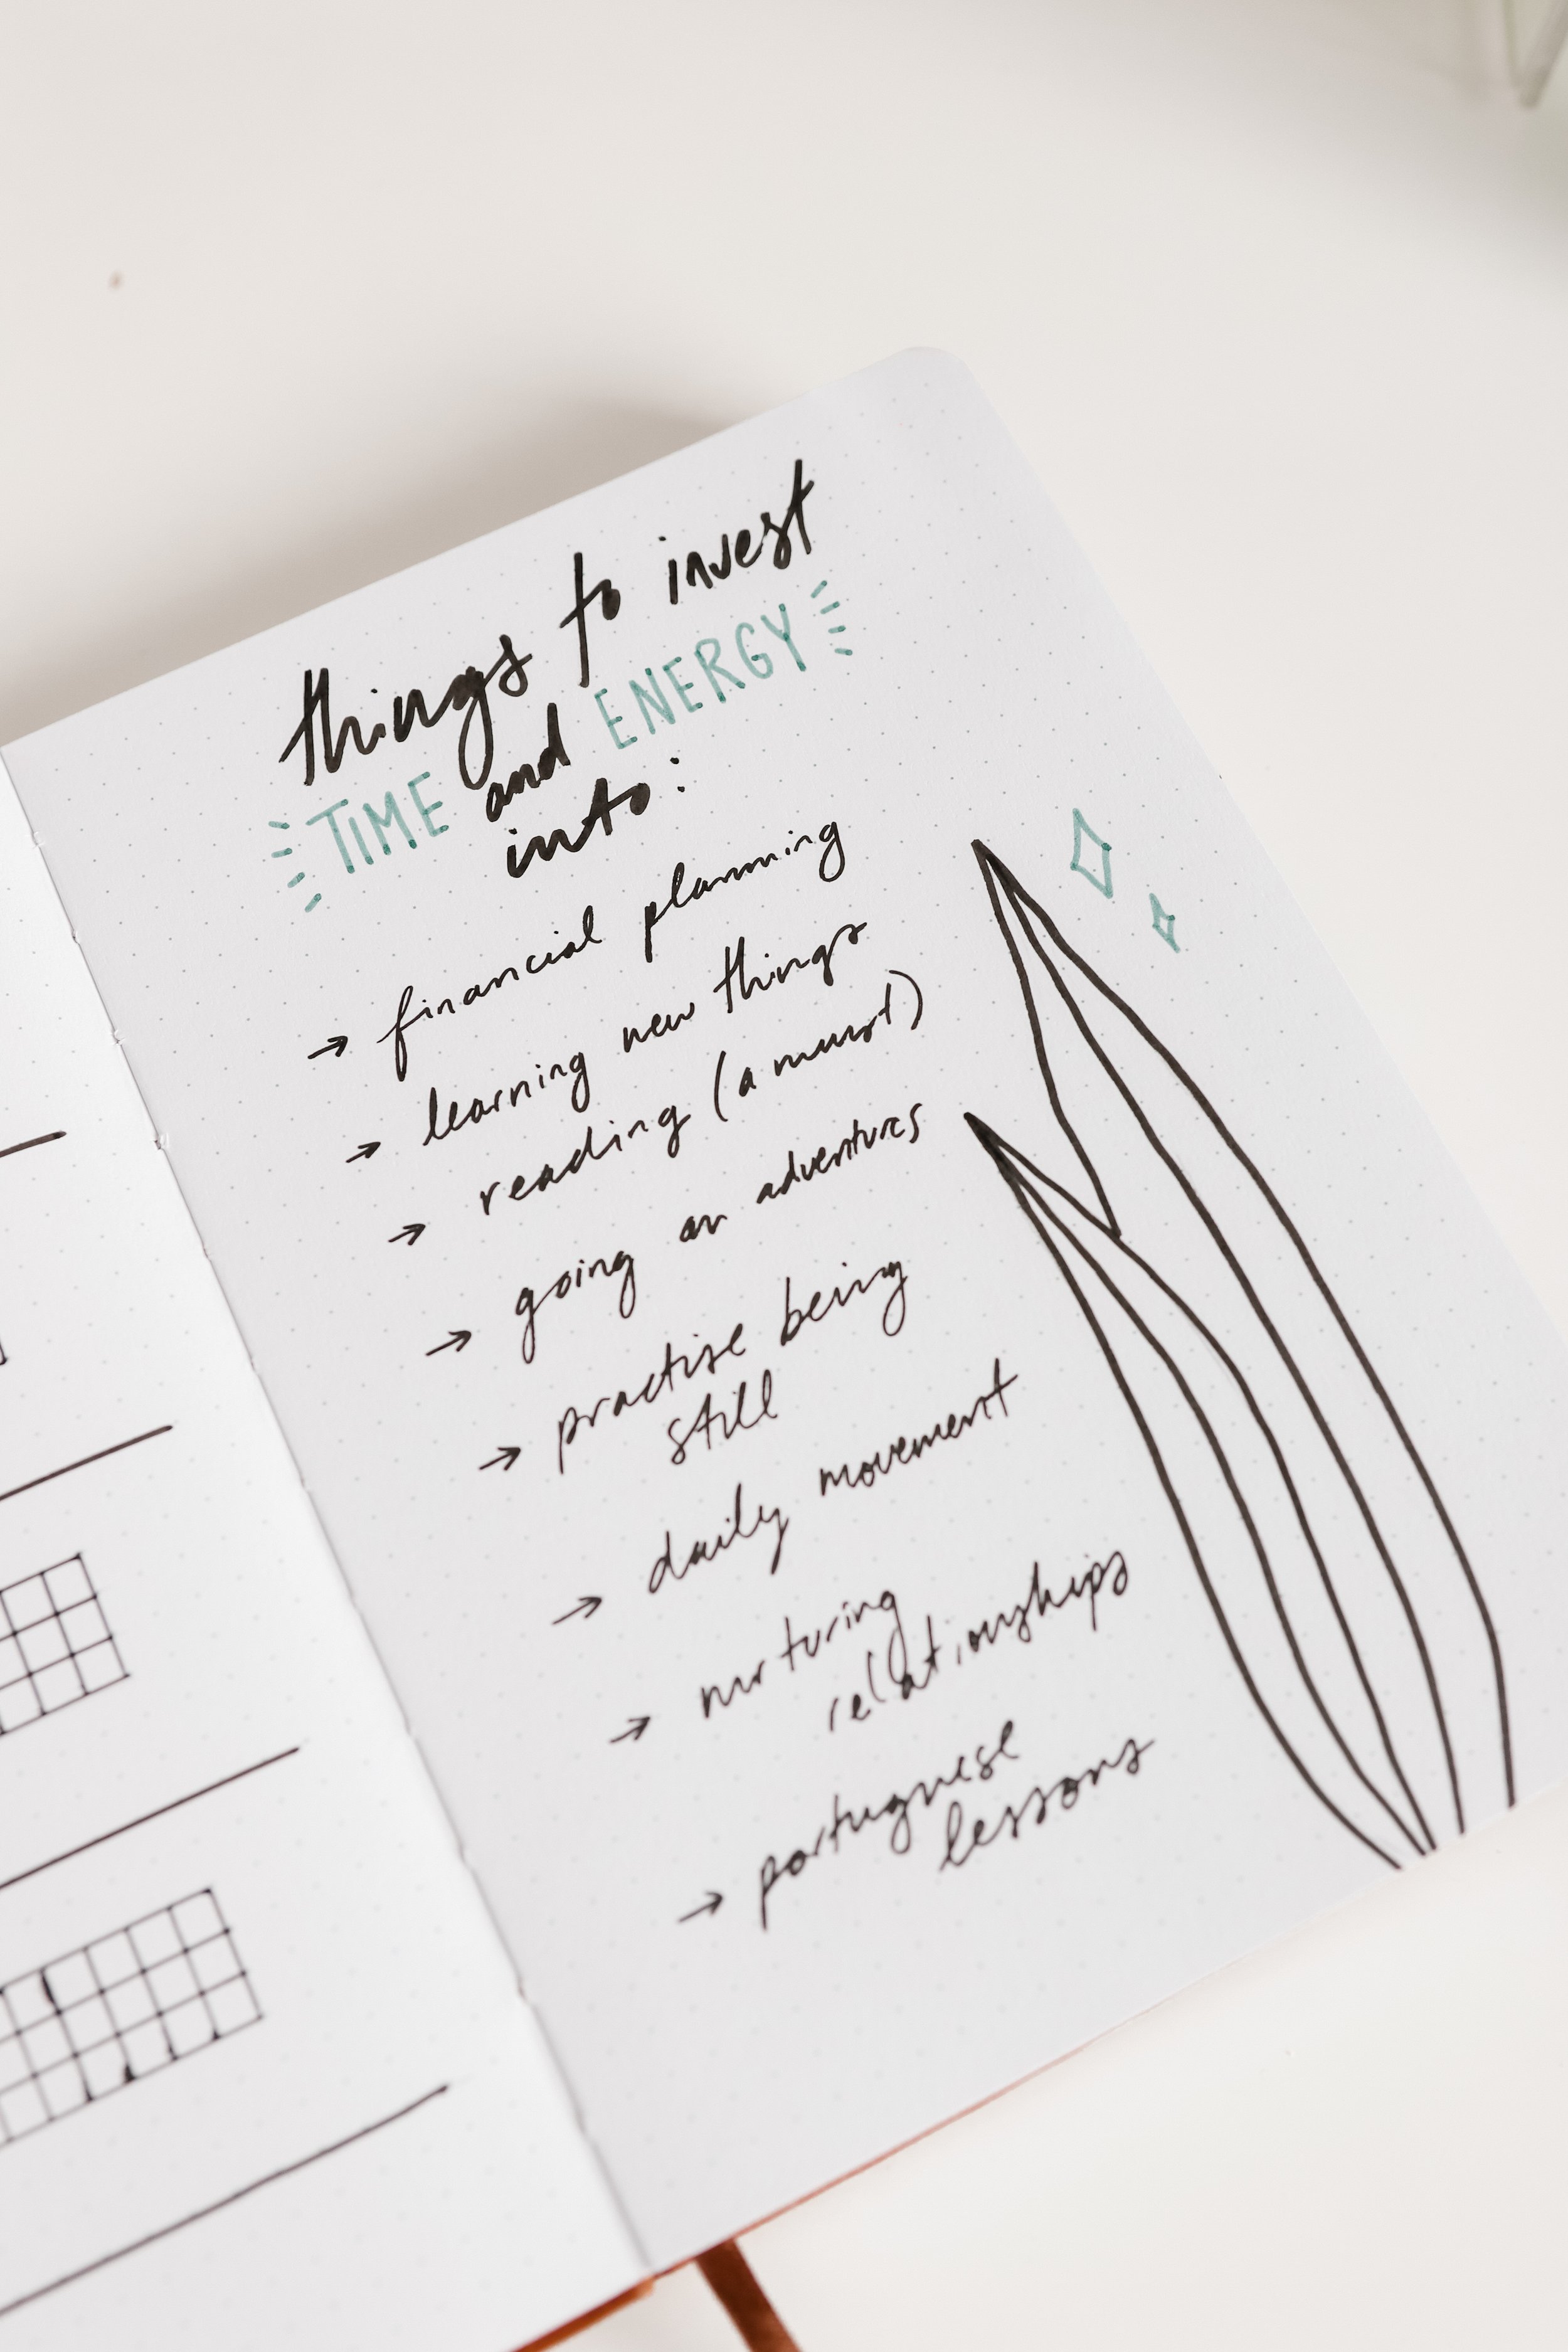 things to invest
TIME and ENERGY
into:
→ financial planning
→ learning new things
→ reading (a must)
→ going on adventures
→ practise being
still
→ daily movement
→ nurturing
relationships
→ portuguese
lessons